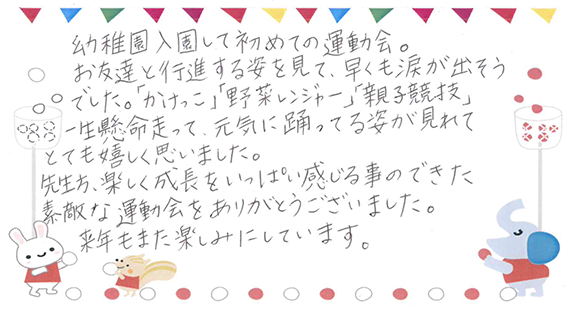 幼稚園入園して初めての運動会。
お友達と行進する姿を見て、早くも涙が出そう
でした。「かけっこ」「野菜レンジャー」「親子競技」
一生懸命走って、元気に踊ってる姿が見れて
とても嬉しく思いました。
先生方、楽しく成長をいっぱい感じる事のできた
素敵な運動会をありがとうございました。
来年もまた楽しみにしています。